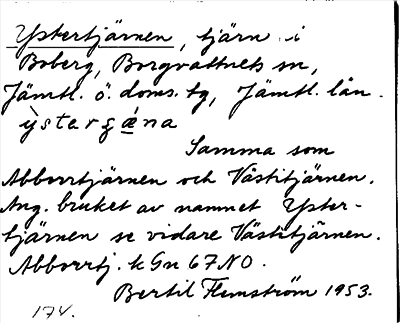 Ystertjärnen, tjärn i
Boberg, Borgvattnets sn,
Jämtl. ö. doms. tg, Jämtl. län.
ỳstergæ̀na
Samma som
Abborrtjärnen och Västitjärnen.
Ang. bruket av namnet Yster-
tjärnen se vidare Västitjärnen.
Abborrtj. k Gn 67 NO.
Bertil Flemström 1953.
174.